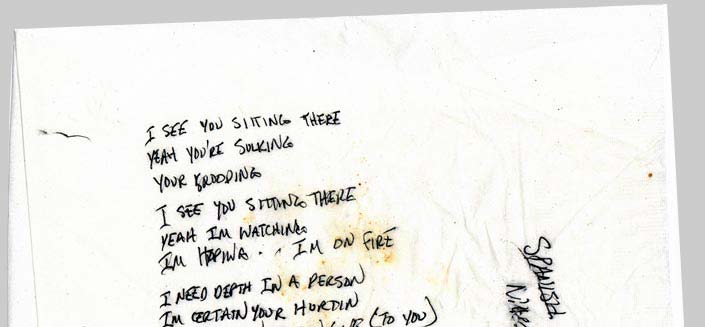 I SEE YOU SITTING THERE
YEAH YOU'RE SULKING
YOUR BROODING
I SEE YOU SITTING THERE
YEAH IM WATCHING
IM HOPING . . IM ON FIRE
I NEED DEPTH IN A PERSON
IM CERTAIN YOUR HURTIN
(TO YOU)
SPANISH